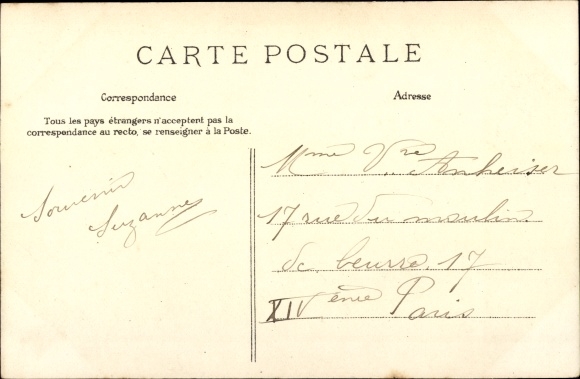 CARTE POSTALE
Correspondance
Adresse
Tous les pays étrangers n'acceptent pas la
correspondance au recto, se renseigner à la Poste.
Souvenir
Suzanne
Mme Vve Anheiser
17 rue du moulin
de beurre. 17
XIVème Paris